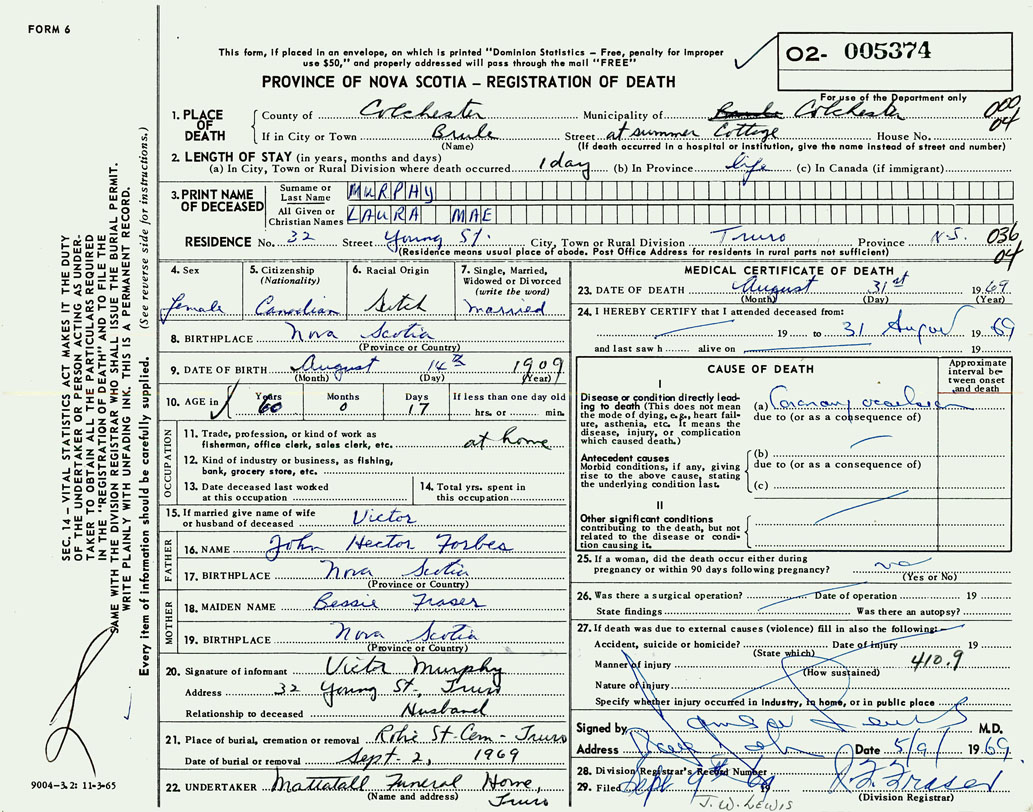 FORM 6
This form, if placed in an envelope, on which is printed "Dominion Statistics – Free, penalty for improper
use $50," and properly addressed will pass through the mail "FREE"
02- 005374
For use of the Department only
PROVINCE OF NOVA SCOTIA – REGISTRATION OF DEATH
1. PLACE OF DEATH County of Colchester Municipality of Colchester 000
If in City or Town Brule Street at summer Cottage House No. 04
(Name) (If death occurred in a hospital or institution, give the name instead of street and number)
2. LENGTH OF STAY (in years, months and days)
(a) In City, Town or Rural Division where death occurred 1 day (b) In Province life (c) In Canada (if immigrant)
3. PRINT NAME OF DECEASED Surname or Last Name MURPHY
All Given or Christian Names LAURA MAE
RESIDENCE No. 32 Street Young St. City, Town or Rural Division Truro Province N.S. 036
(Residence means usual place of abode. Post Office Address for residents in rural parts not sufficient) 04
4. Sex
female
5. Citizenship
(Nationality)
Canadian
6. Racial Origin
7. Single, Married,
Widowed or Divorced
(write the word)
married
8. BIRTHPLACE Nova Scotia
(Province or Country)
9. DATE OF BIRTH August 14th 1909
(Month) (Day) (Year)
10. AGE in Years Months Days If less than one day old
60 0 17 hrs. or min.
OCCUPATION
11. Trade, profession, or kind of work as
fisherman, office clerk, sales clerk, etc. at home
12. Kind of industry or business, as fishing,
bank, grocery store, etc.
13. Date deceased last worked
at this occupation
14. Total yrs. spent in
this occupation
15. If married give name of wife
or husband of deceased Victor
FATHER
16. NAME John Hector Forbes
17. BIRTHPLACE Nova Scotia
(Province or Country)
MOTHER
18. MAIDEN NAME Bessie Fraser
19. BIRTHPLACE Nova Scotia
(Province or Country)
20. Signature of informant Victor Murphy
Address 32 Young St., Truro
Relationship to deceased Husband
21. Place of burial, cremation or removal Robie St. Cem - Truro
Date of burial or removal Sept. 2, 1969
22. UNDERTAKER Mattatall Funeral Home,
(Name and address) Truro
MEDICAL CERTIFICATE OF DEATH
23. DATE OF DEATH August 31st 1969
(Month) (Day) (Year)
24. I HEREBY CERTIFY that I attended deceased from:
19 to 31 August 1969
and last saw h alive on 19
CAUSE OF DEATH
Approximate
interval be-
tween onset
and death
I
Disease or condition directly lead-
ing to death (This does not mean
the mode of dying, e.g., heart fail-
ure, asthenia, etc. It means the
disease, injury, or complication
which caused death.)
(a) Coronary occlusion
due to (or as a consequence of)
Antecedent causes
Morbid conditions, if any, giving
rise to the above cause, stating
the underlying condition last.
(b)
due to (or as a consequence of)
(c)
II
Other significant conditions
contributing to the death, but not
related to the disease or condi-
tion causing it.
25. If a woman, did the death occur either during
pregnancy or within 90 days following pregnancy? no
(Yes or No)
26. Was there a surgical operation? Date of operation 19
State findings Was there an autopsy?
27. If death was due to external causes (violence) fill in also the following:
Accident, suicide or homicide? Date of injury 19
(State which)
Manner of injury 410.9
(How sustained)
Nature of injury
Specify whether injury occurred in Industry, in home, or in public place
Signed by M.D.
Address Date 5/9/ 1969
28. Division Registrar's Record Number
29. Filed Sept 9th 69
(Division Registrar)
J. W. LEWIS
SEC. 14 – VITAL STATISTICS ACT MAKES IT THE DUTY
OF THE UNDERTAKER OR PERSON ACTING AS UNDER-
TAKER TO OBTAIN ALL THE PARTICULARS REQUIRED
IN THE "REGISTRATION OF DEATH" AND TO FILE THE
SAME WITH THE DIVISION REGISTRAR WHO SHALL ISSUE THE BURIAL PERMIT.
WRITE PLAINLY WITH UNFADING INK. THIS IS A PERMANENT RECORD.
Every item of information should be carefully supplied. (See reverse side for instructions.)
9004–3.2: 11-3-65